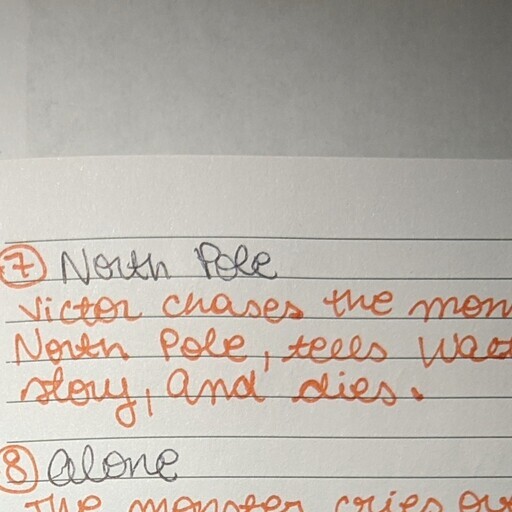 7 North Pole
Victor chases the mon
North Pole, tells Wal
story, and dies.
8 alone
The monster cries ov